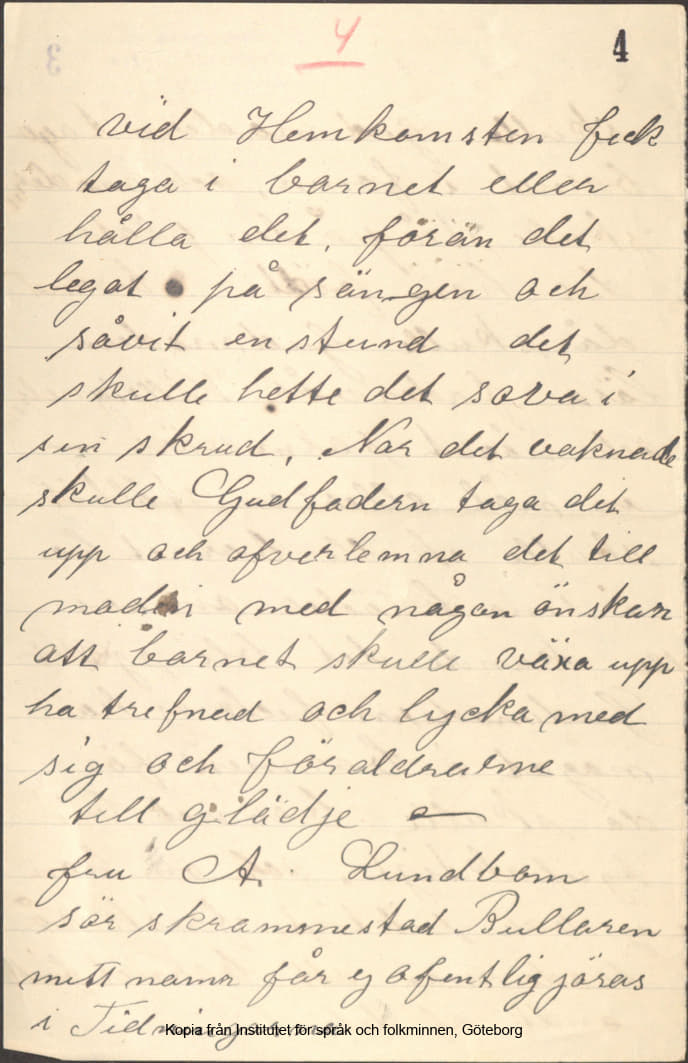 4
4
3
vid Hemkomsten feck
taga i barnet eller
hålla det, förän det
legat på sängen och
såvit en stund det
skulle hette det sova i
sin skrud, När det vaknade
skulle Gudfadern taga det
upp och ofverlemna det till
modern med någon önskan
att barnet skulle växa upp
ha trefnad och lycka med
sig och föraldrarne
till glädje —
fru A. Lundbom
sör skrammestad Bullaren
mitt namn får ej ofentliggöras
i Tidningarna
Kopia från Institutet för språk och folkminnen, Göteborg